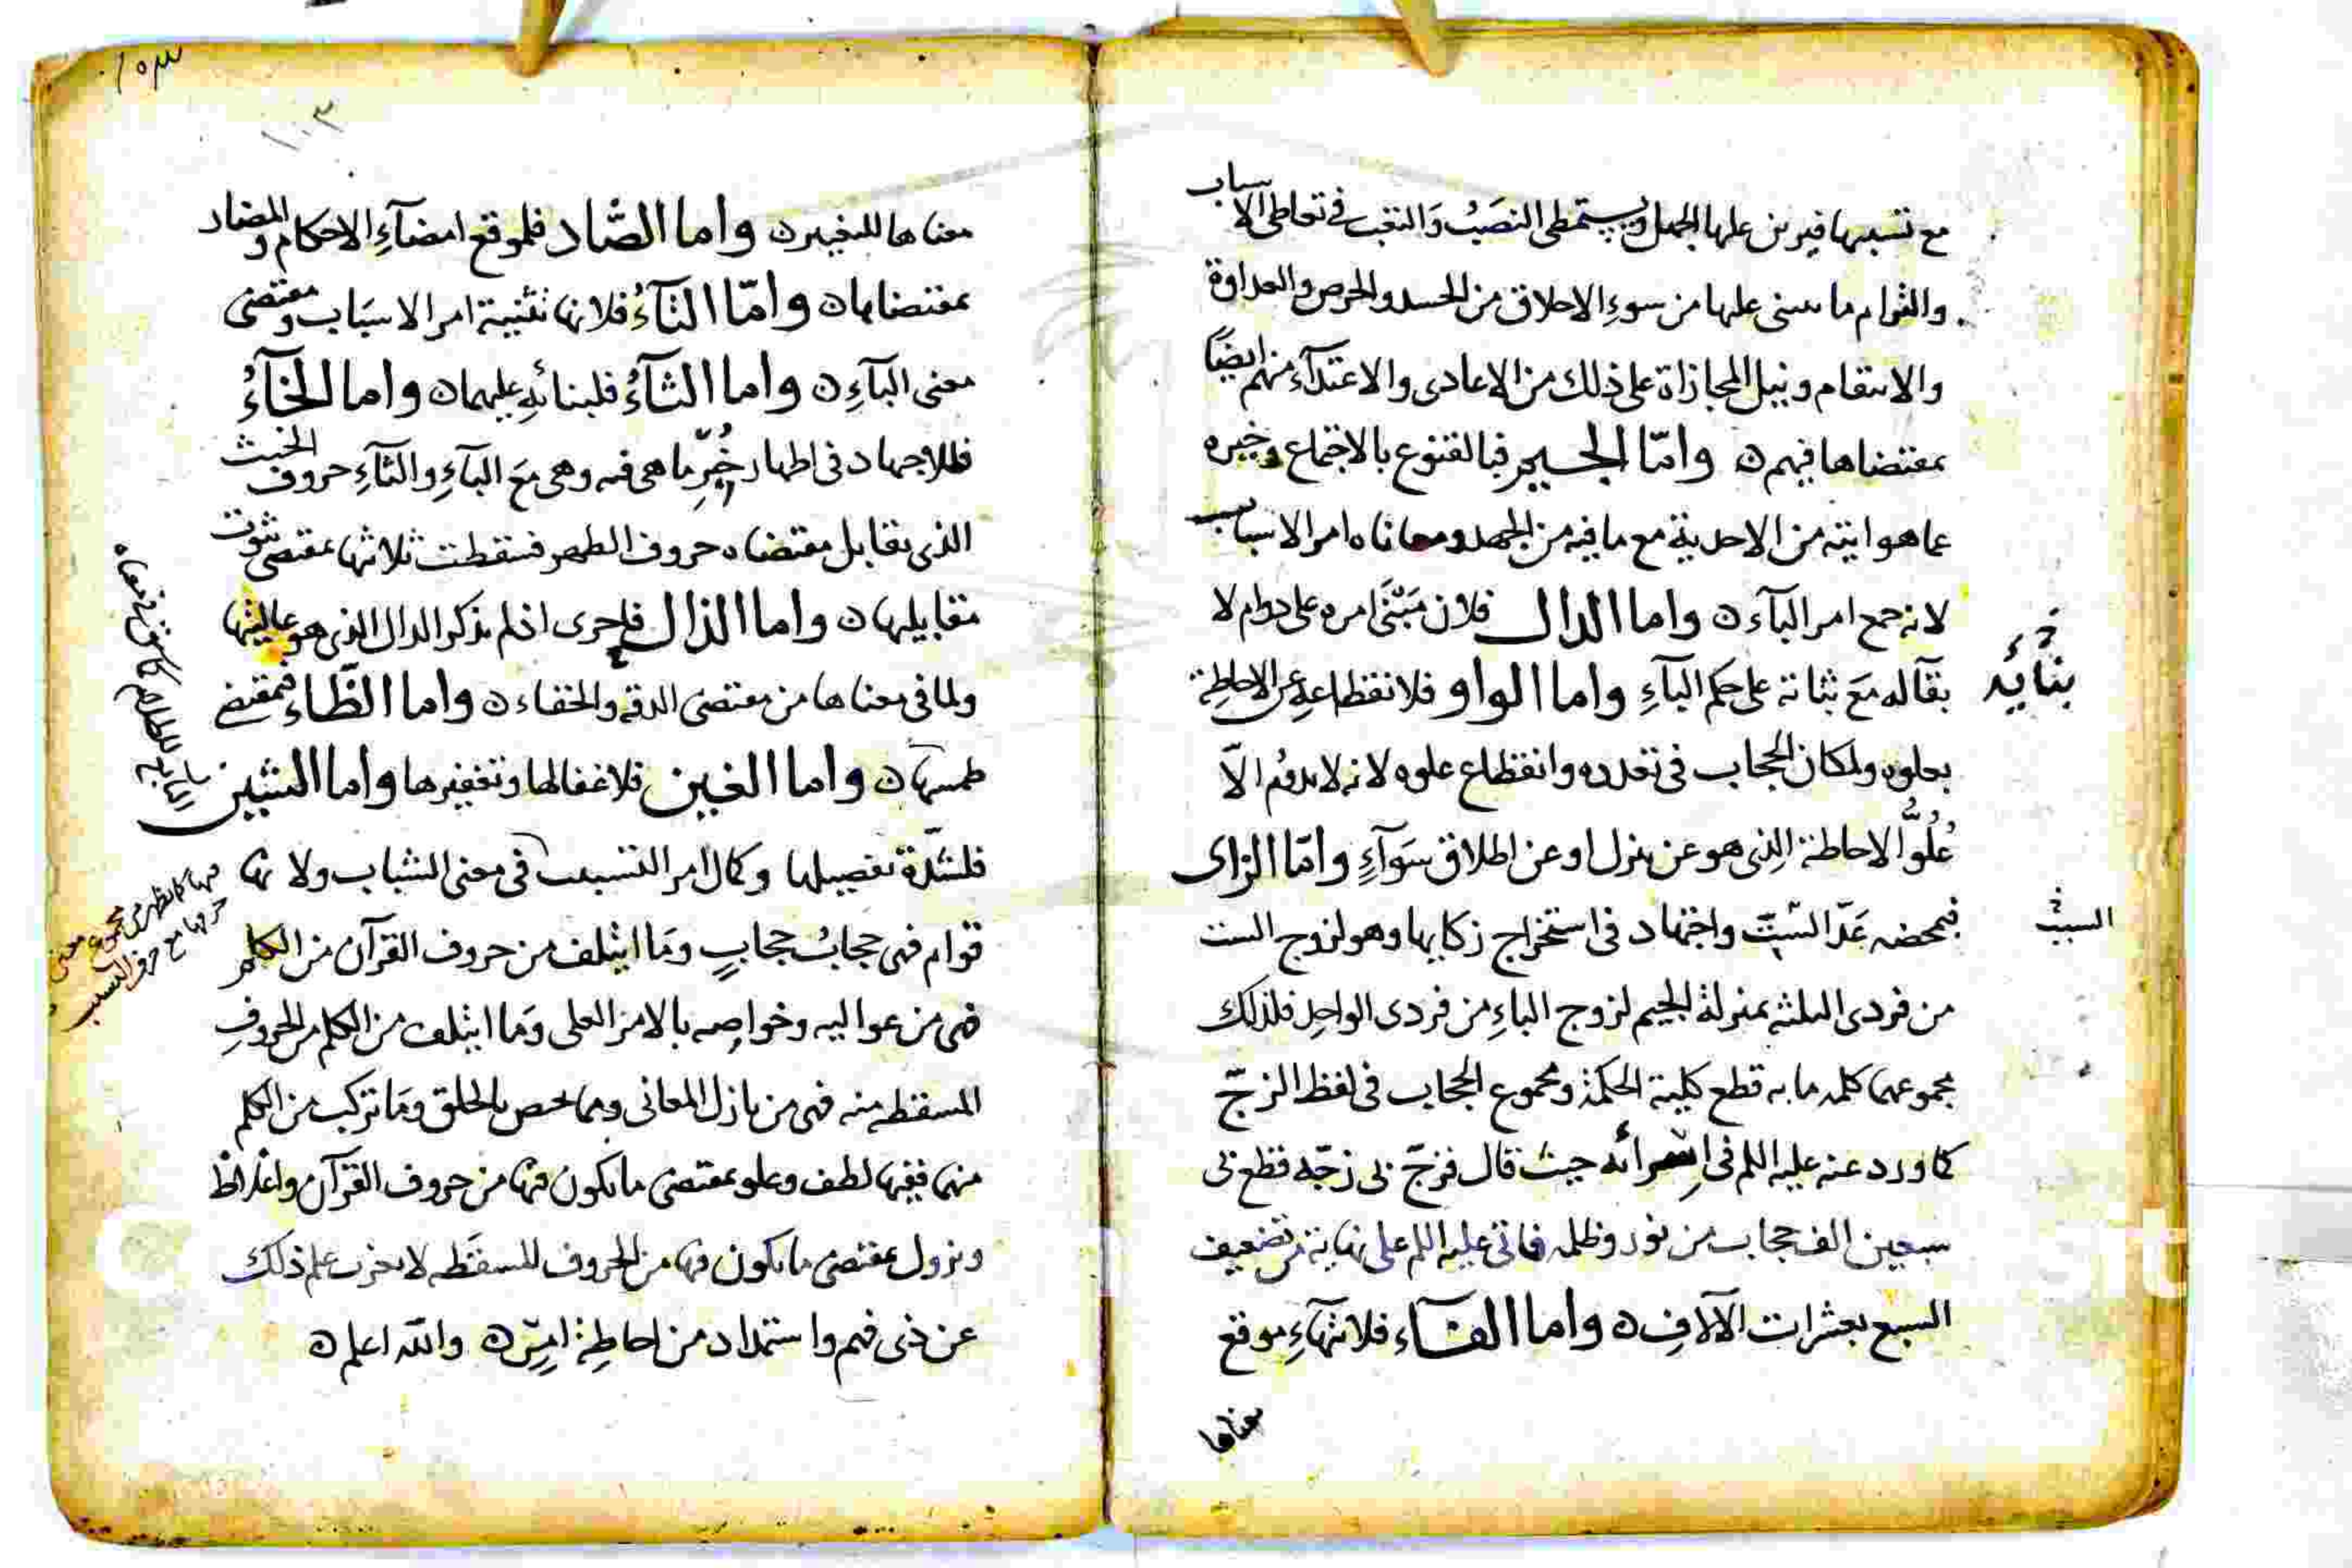 مع تسببها فيرين عليها الجهل ويستمطى النصب والتعب في تعاطى الاسباب
والقوام ما سنى عليها من سوء الاخلاق من الحسد والحرص والعداوة
والانتقام ونيل المجازاة على ذلك من الاعادى والاعتدآء منهم ايضًا
بمقتضاها فيهم ه واما الجيم فبالقنوع بالاجتماع وخيره
عما هو ايته من الاحدية مع ما فيه من الجهد ومعاناه امر الاسباب
لانه جمع امر البآء ه واما الدال فلان مبنى امره على دوام لا
بقآ له مع ثباته على حكم البآء واما الواو فلانقطاعه عن الاحاطة
بعلوه ولمكان الحجاب في تعدده وانقطاع علوه لانه لا يدوم الا
علو الاحاطة الذى هو عن نزل او عن اطلاق سوآء واما الزاى
فبمحضه عد الست واجتهاد في استخراج زكايها وهو لزوج الست
من فردى الثلثه بمنزلة الجيم لزوج الباء من فردى الواحد فلذلك
مجموعهما كلمه ما به قطع كلية الحكمة ومجموع الحجاب في لفظ الزج
كما ورد عنه عليه السلم في اسرائه حيث قال فزج بى زجه قطع بى
سبعين الف حجاب من نور وظلمه فاتى عليه السلم على نهاية من تضعيف
السبع بعشرات الآلاف ه واما الفآء فلانتهاء موقع
معناها
بنايه
السبب
١٠٣
١٠٣
معناها للتغير ه واما الصاد فلموقع امضآء الاحكام والمضاد
بمقتضاها ه واما التآء فلانها تثنية امر الاسباب ومقتضى
معنى البآء ه واما الثآء فلبنائه عليهما ه واما الخآء
فللاجتهاد في اظهار خير ما هى فيه وهى مع البآء والثآء حروف الخبث
الذى تقابل مقتضاه حروف الطهر فسقطت ثلاثتها بمقتضى ثبوت
مقابلها ه واما الذال فاحرى اذ لم يذكر الدال الذى هو عاليها
ولما في معناها من مقتضى الدقه والخفاء ه واما الظاء فمقتضى
طمسها ه واما الغين فلاغفالها وتغفيرها واما الشين
فلشدة تفصيلها وكمال امر التسبب في معنى الشباب ولا نها
قوام فهى حجاب حجاب وما ايتلف من حروف القرآن من الكلم
فهى من عواليه وخواصه بالامر العلى وما ايتلف من الكلم من الحروف
المسقطه منه فهى من نازل المعانى ومما يخص بالخلق وما تركب من الكلم
منهما ففيها لطف وعلو بمقتضى ما يكون فيها من حروف القرآن واغلاظ
ونزول بمقتضى ما يكون فيها من الحروف المسقطه لا يعزب علم ذلك
عن ذى فهم واستمداد من احاطة امر ه والله اعلم ه